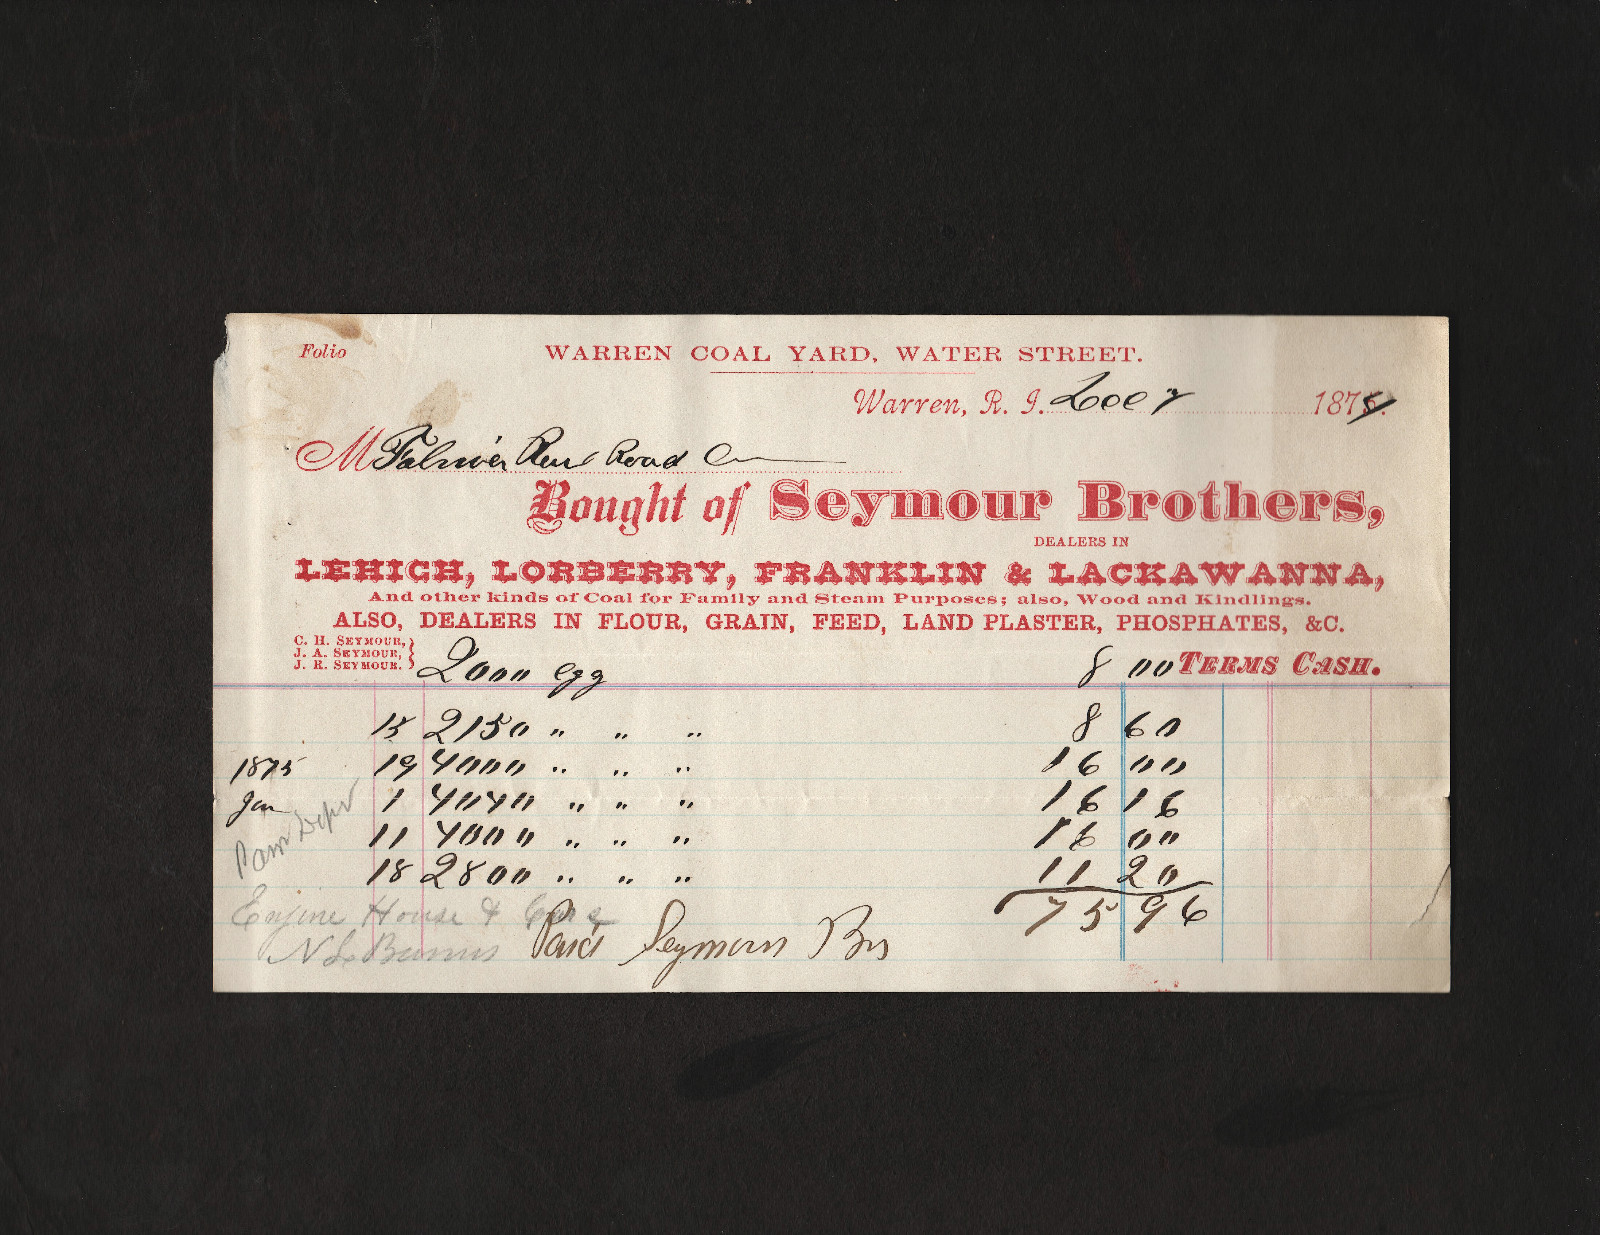 Folio WARREN COAL YARD, WATER STREET.
Warren, R. I. Dec 7 1874
M Rail Road Co
Bought of Seymour Brothers,
DEALERS IN
LEHIGH, LORBERRY, FRANKLIN & LACKAWANNA,
And other kinds of Coal for Family and Steam Purposes; also, Wood and Kindlings.
ALSO, DEALERS IN FLOUR, GRAIN, FEED, LAND PLASTER, PHOSPHATES, &C.
C. H. SEYMOUR,
J. A. SEYMOUR,
J. R. SEYMOUR.
2000 egg 8 00 TERMS CASH.
15 2150 " " " 8 60
1875 19 4000 " " " 16 00
Jan 1 4040 " " " 16 16
11 4000 " " " 16 00
18 2800 " " " 11 20
75 96
Engine House & Cars
Paid Seymour Bros